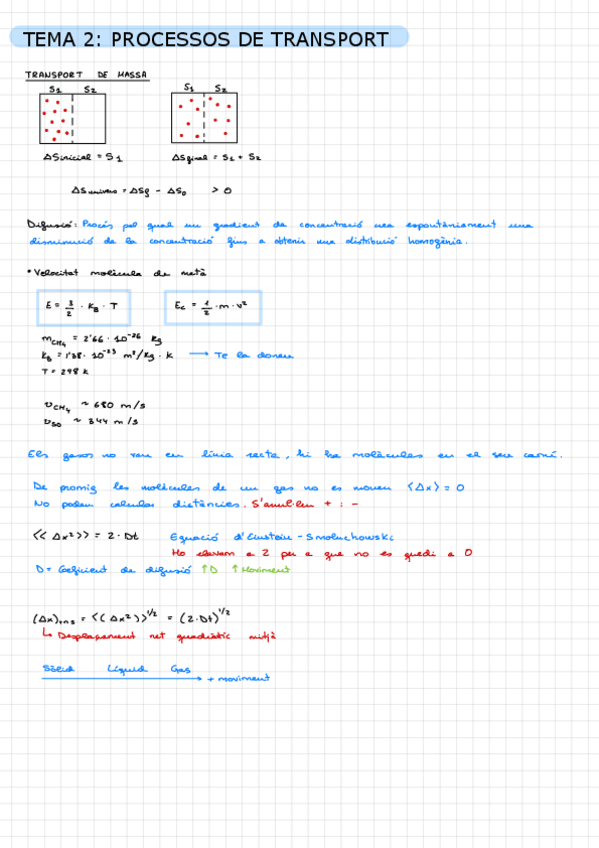 TEMA 2: PROCESSOS DE TRANSPORT
TRANSPORT DE MASSA
S1 S2 S1 S2
ΔSinicial = S1 ΔSfinal = S1 + S2
ΔSunivers = ΔSf - ΔS0 > 0
Difusió: Procés pel qual un gradient de concentració crea espontàniament una
disminució de la concentració fins a obtenir una distribució homogènia.
• Velocitat molècula de metà
E = 3/2 · KB · T Ec = 1/2 · m · v²
mCH4 = 2'66 · 10⁻²⁶ Kg
KB = 1'38 · 10⁻²³ m²/Kg · K → Te la donen
T = 298 K
vCH4 ~ 680 m/s
vso ~ 344 m/s
Els gasos no van en línia recta, hi ha molècules en el seu camí.
De promig les molècules de un gas no es mouen ⟨Δx⟩ = 0
No podem calcular distàncies. S'anul·len + i -
⟨(Δx²)⟩ = 2·Dt Equació d'Einstein - Smoluchowski
Ho elevem a 2 per a que no es quedi a 0
D = Coeficient de difusió ↑D ↑Moviment
(Δx)rms = ⟨(Δx²)⟩^1/2 = (2·Dt)^1/2
↳ Desplaçament net quadràtic mitjà
Sòlid Líquid Gas
+ moviment